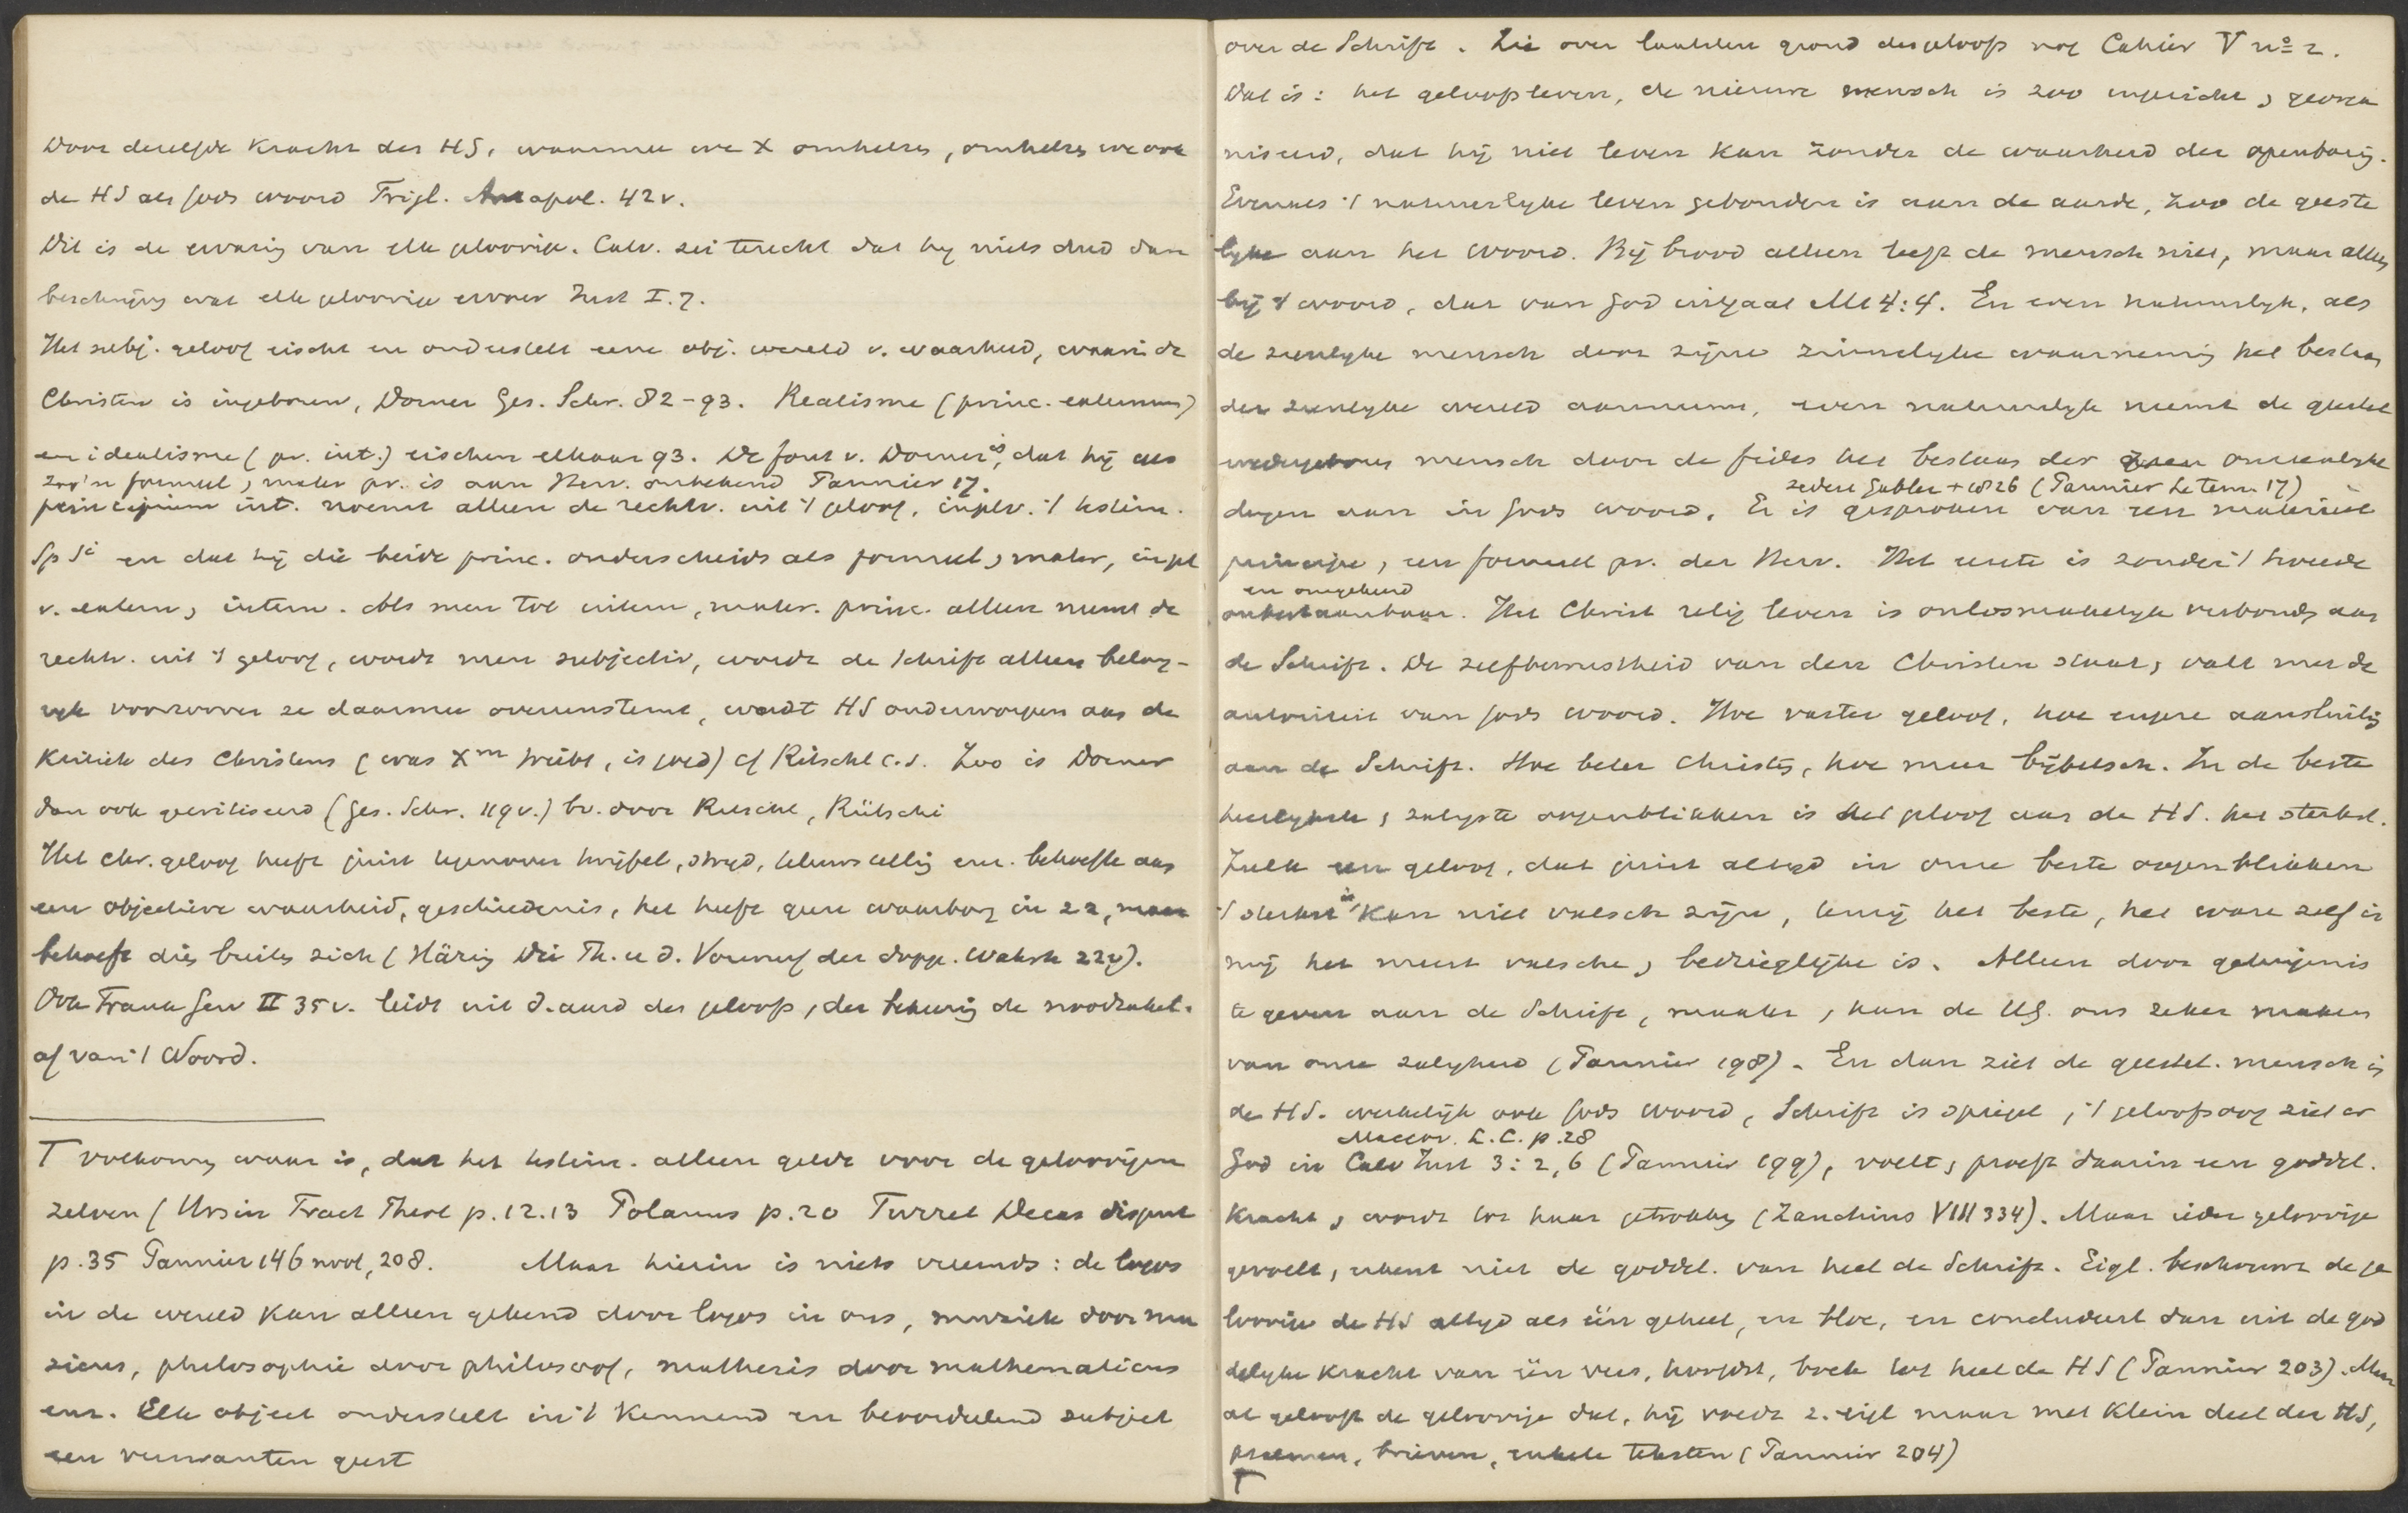 Door dezelfde kracht des HS, waarmee we X omhelzen, omhelzen we ook
de HS als Gods woord Trigl. Antapol. 42v.
Dit is de ervaring van elke geloovige. Calv. zei terecht dat hij niets deed dan
beschrijven wat elke geloovige ervoer Inst I.7.
Het subj. geloof eischt en onderstelt eene obj. wereld v. waarheid, waarin de
Christen is ingeboren, Dorner Ges. Schr. 82-93. Realisme (princ. externum)
en idealisme (pr. int.) eischen elkaar 93. De fout v. Dorner is, dat hij als
zoo'n formeel, mater pr. is aan Herv. onbekend Pannier 17.
principium int. noemt alleen de rechtv. uit 't geloof, inplv. 't testim.
Sp Si en dat hij die beide princ. onderscheidt als formeel, mater, inpl
v. extern, intern. Als men tot intern, mater. princ. alleen neemt de
rechtv. uit 't geloof, wordt men subjectiv, wordt de Schrift alleen belang-
rijk voorzoover ze daarmee overeenstemt, wordt HS onderworpen aan de
kritiek des Christens (was Xm treibt, is goed) cf Ritschl c.s. Zoo is Dorner
dan ook gecritiseerd (Ges. Schr. 119v.) bv. door Rütschi
Het chr. geloof heeft juist tegenover twijfel, strijd, teleurstelling enz. behoefte aan
een objectieve waarheid, geschiedenis, het heeft geen waarborg in zz, maar
behoeft dien buiten zich (Häring Die Th. u d. Vorwurf der dopp. Wahrh 22v).
Ook Frank Gew II 35v. leidt uit d. aard des geloofs, der bekeering de noodzakel.
af van 't Woord.
T volkomen waar is, dat het testim. alleen geldt voor de geloovigen
zelven (Ursin Tract Theol p. 12.13 Polanus p. 20 Turret Decas disput
p. 35 Pannier 146 noot, 208. Maar hierin is niets vreemds: de logos
in de wereld kan alleen gekend door logos in ons, muziek door mu
zicus, philosophie door philosoof, mathesis door mathematicus
enz. Elk object onderstelt in 't kennend en beoordeelend subject
een verwanten geest
over de Schrift. Zie over laatsten grond des geloofs nog Cahier V no 2.
Dat is: het geloofsleven, de nieuwe mensch is zoo ingericht, georga
niseerd, dat hij niet leven kan zonder de waarheid der openbaring.
Evenals 't natuurlijke leven gebonden is aan de aarde, zoo de geeste
lijke aan het woord. Bij brood alleen leeft de mensch niet, maar alleen
bij 't woord, dat van God uitgaat Mt 4:4. En even natuurlijk, als
de zienlijke mensch door zijne zinnelijke waarneming het bestaan
der zienlijke wereld aanneemt, even natuurlijk neemt de geestel
wedergeboren mensch door de fides het bestaan der onzienlijke
zedert Gabler + 1826 (Pannier Le tem. 17)
dingen aan in Gods woord. Er is gesproken van een materieel
principe, een formeel pr. der Herv. Het eerste is zonder 't tweede
en omgekeerd
onbestaanbaar. Het Christ relig leven is onlosmakelijk verbonden aan
de Schrift. De zelfbewustheid van den Christen staat, valt met de
autoriteit van Gods woord. Hoe vaster geloof, hoe enger aansluiting
aan de Schrift. Hoe beter Christen, hoe meer bijbelsch. In de beste
heerlijkste, zaligste oogenblikken is het geloof aan de HS. het sterkst.
Zulk een geloof, dat juist altijd in onze beste oogenblikken
't sterkst is, kan niet valsch zijn, tenzij het beste, het ware zelf in
mij het meest valsche, bedrieglijke is. Alleen door getuigenis
te geven aan de Schrift, maakt, kan de HG. ons zeker maken
van onze zaligheid (Pannier 198). En dan ziet de geestel. mensch in
de HS. werkelijk ook Gods woord, Schrift is spiegel, 't geloofsoog ziet er
Maccov. L.C. p. 28
God in Calv Inst 3:2,6 (Pannier 199), voelt, proeft daarin een goddel.
kracht, wordt tot haar getrokken (Zanchius VIII 334). Maar ieder geloovige
gevoelt, erkent niet de goddel. van heel de Schrift. Eigl. beschouwt de ge
loovige de HS altijd als één geheel, en bloc, en concludeert dan uit de god
delijke kracht van één vers, hoofdst, boek tot heel de HS (Pannier 203). Maar
al gelooft de geloovige dat, hij voedt z. eigl maar met klein deel der HS,
psalmen, brieven, enkele teksten (Pannier 204)
T